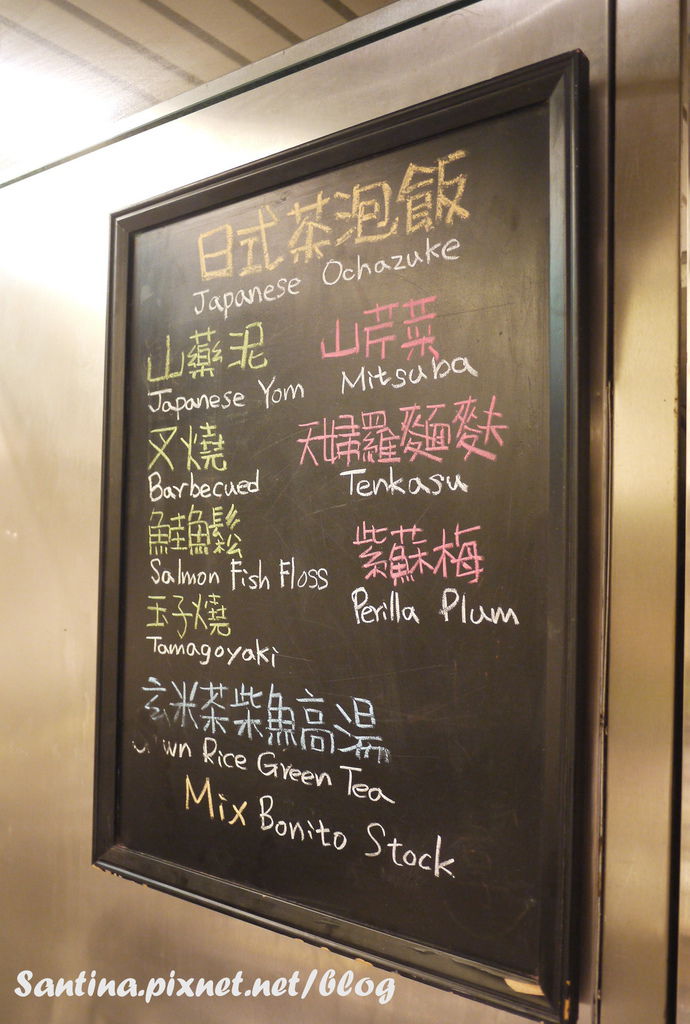 日式茶泡飯
Japanese Ochazuke
山藥泥
Japanese Yom
叉燒
Barbecued
鮭魚鬆
Salmon Fish Floss
玉子燒
Tamagoyaki
山芹菜
Mitsuba
天婦羅麵麩
Tenkasu
紫蘇梅
Perilla Plum
玄米茶柴魚高湯
Rice Green Tea
Mix Bonito Stock
Santina.pixnet.net/blog